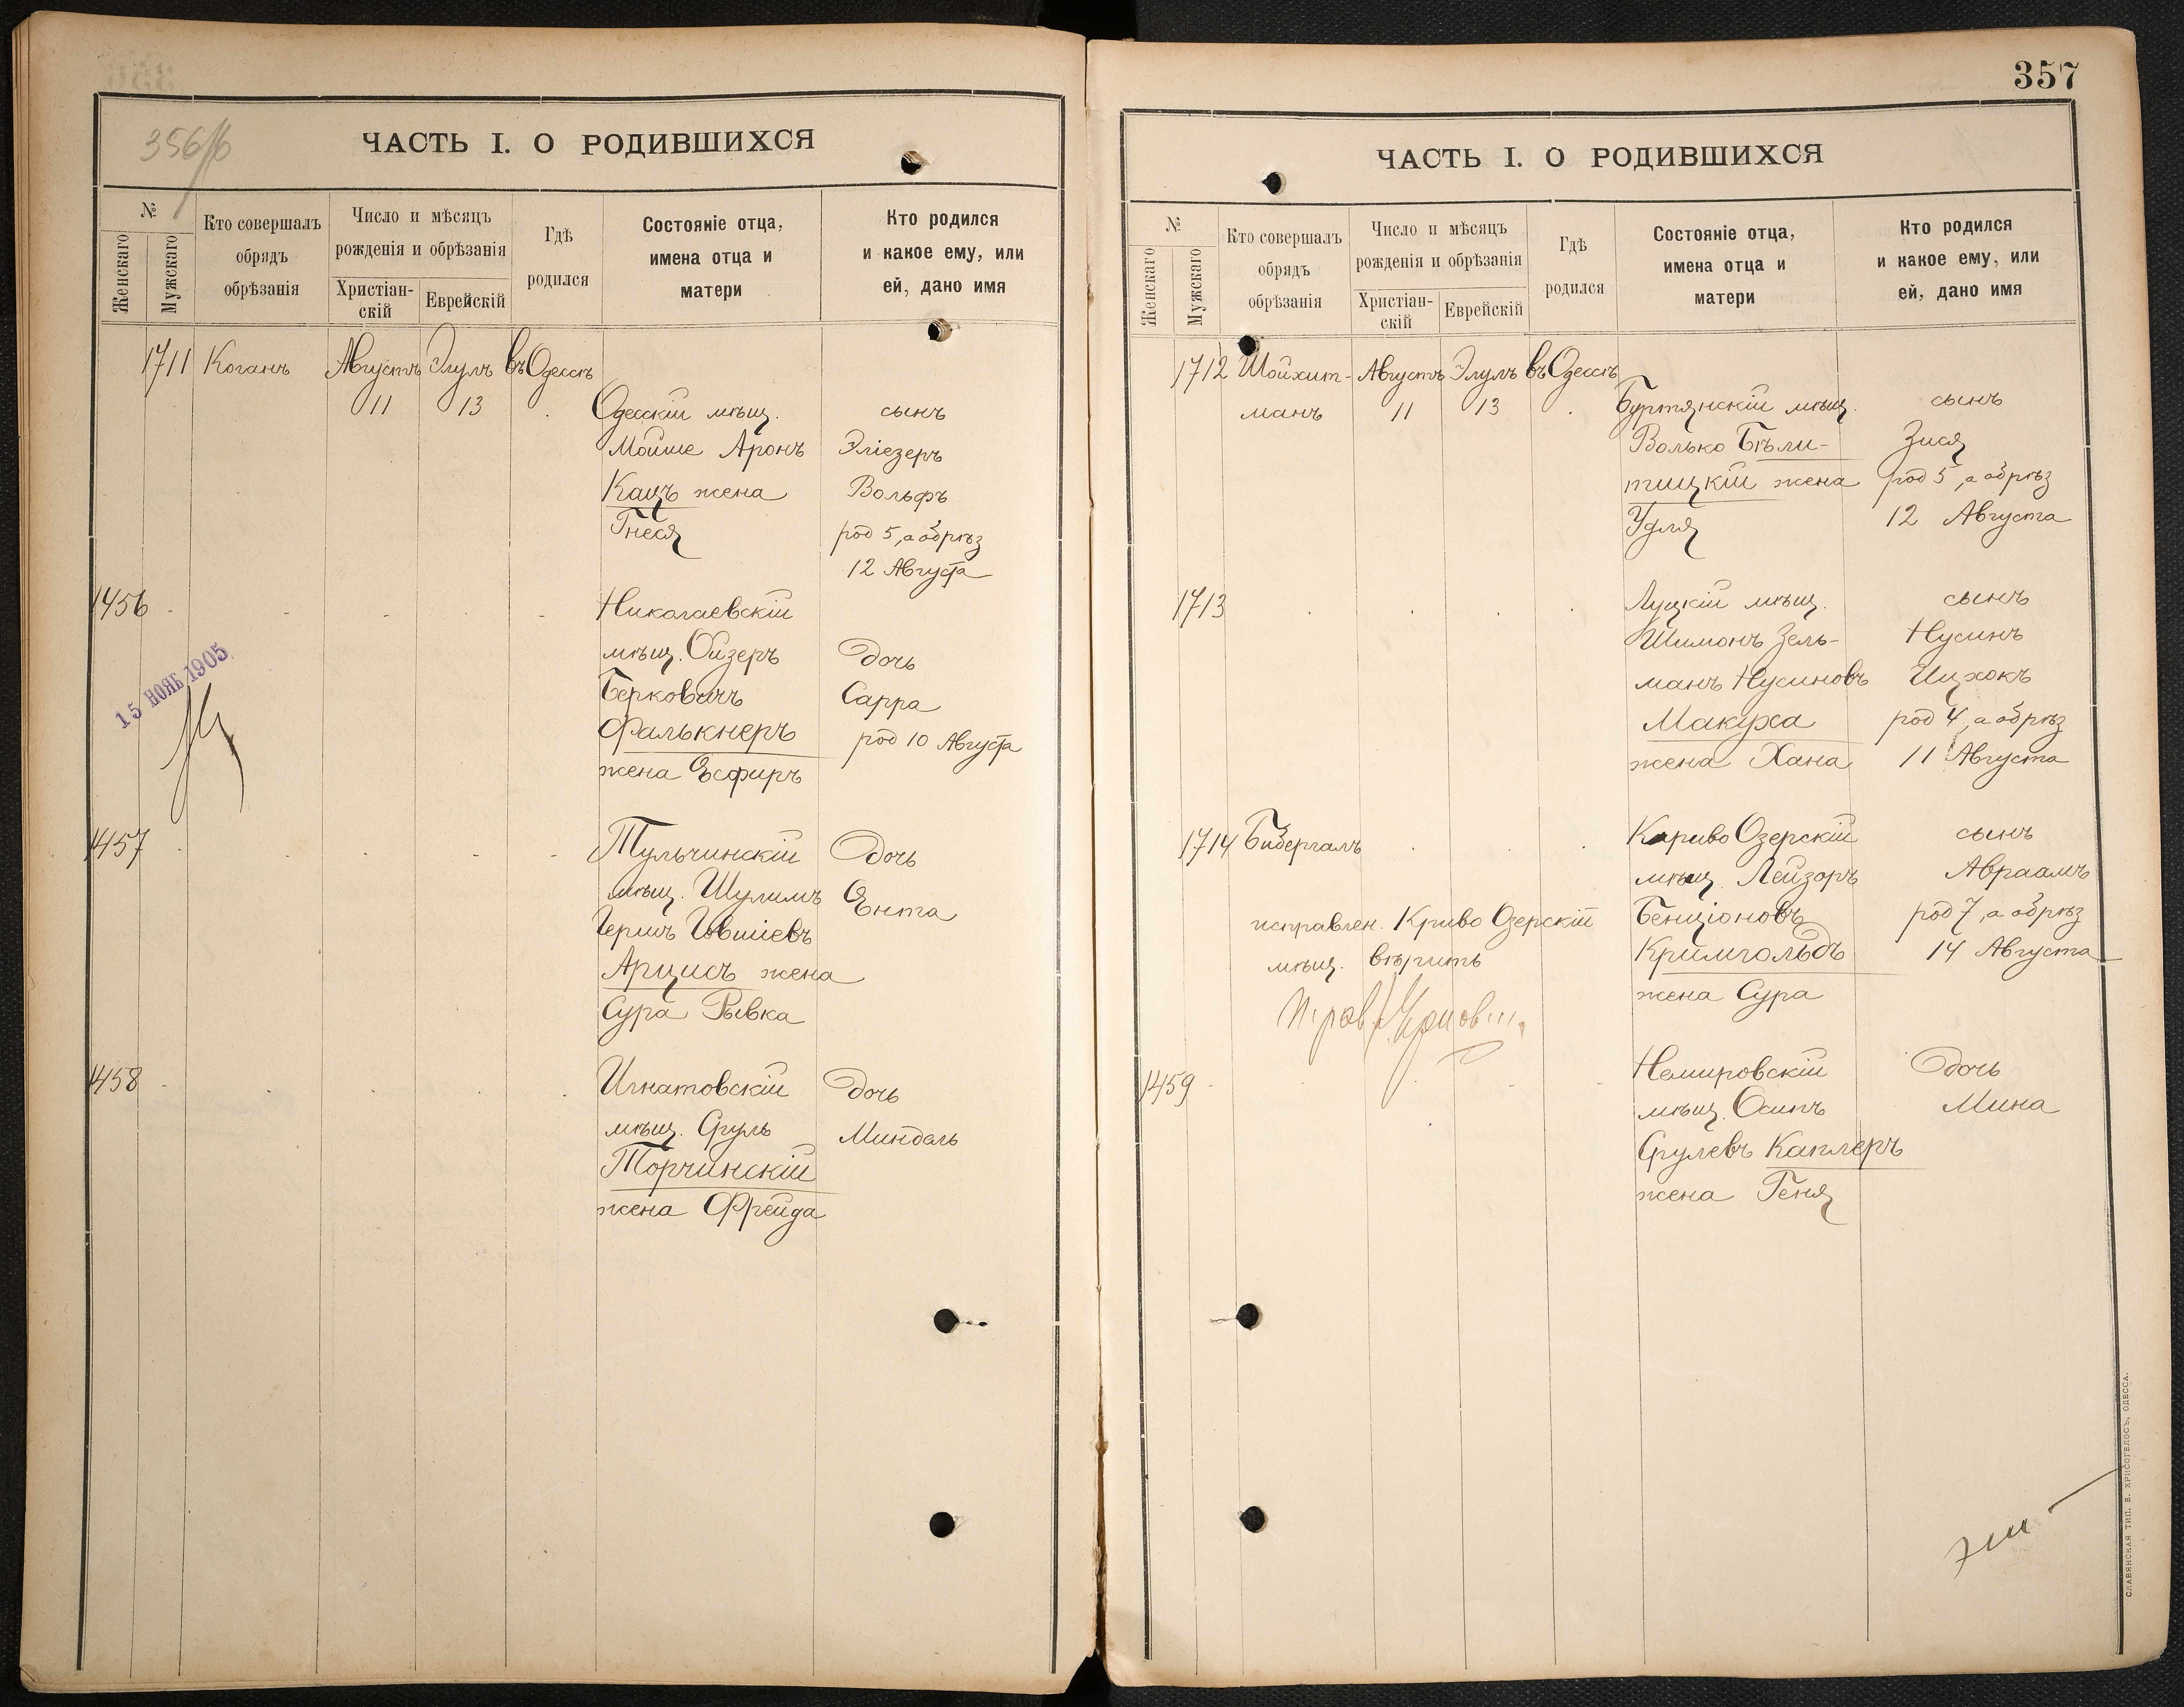 356/б
ЧАСТЬ I. О РОДИВШИХСЯ
№
Женскаго
Мужскаго
Кто совершалъ
обрядъ
обрѣзанія
Число и мѣсяцъ
рожденія и обрѣзанія
Христіан-
скій
Еврейскій
Гдѣ
родился
Состояніе отца,
имена отца и
матери
Кто родился
и какое ему, или
ей, дано имя
1711 Коганъ Августъ Элулъ въ Одессѣ
11 13
Одесскій мѣщ. сынъ
Мойше Аронъ Эліезеръ
Кацъ жена Вольфъ
Гнеся род 5, а обрѣз
12 Августа
1456 Николаевскій
мѣщ. Ойзеръ Дочь
Берковичъ Сарра
Фалькнеръ род 10 Августа
жена Эсфирь
15 НОЯБ 1905
1457 Тульчинскій Дочь
мѣщ. Шулимъ Ента
Гершъ Іовшіевъ
Арцисъ жена
Сура Рывка
1458 Игнатовскій Дочь
мѣщ. Сруль Миндель
Торчинскій
жена Фрейда
357
ЧАСТЬ I. О РОДИВШИХСЯ
№
Женскаго
Мужскаго
Кто совершалъ
обрядъ
обрѣзанія
Число и мѣсяцъ
рожденія и обрѣзанія
Христіан-
скій
Еврейскій
Гдѣ
родился
Состояніе отца,
имена отца и
матери
Кто родился
и какое ему, или
ей, дано имя
1712 Шойхит- Августъ Элулъ въ Одессѣ
манъ 11 13 Буртянскій мѣщ. сынъ
Волько Бѣли- Зися
тицкій жена род 5, а обрѣз
Удля 12 Августа
1713 Луцкій мѣщ. сынъ
Шимонъ Зель- Нусинъ
манъ Нусиновъ Ицхокъ
Макуха род 4, а обрѣз
жена Хана 11 Августа
1714 Бибергалъ Кариво Озерскій сынъ
мѣщ. Лейзоръ Авраамъ
исправлен. Криво Озерскій Бенціоновъ род 7, а обрѣз
мѣщ. вѣрить Кримгольдъ 14 Августа
жена Сура
1459 Немировскій Дочь
мѣщ. Осипъ Мина
Срулевъ Каплеръ
жена Геня
СЛАВЯНСКАЯ ТИП. Е. ХРИСОГЕЛОСЪ, ОДЕССА.